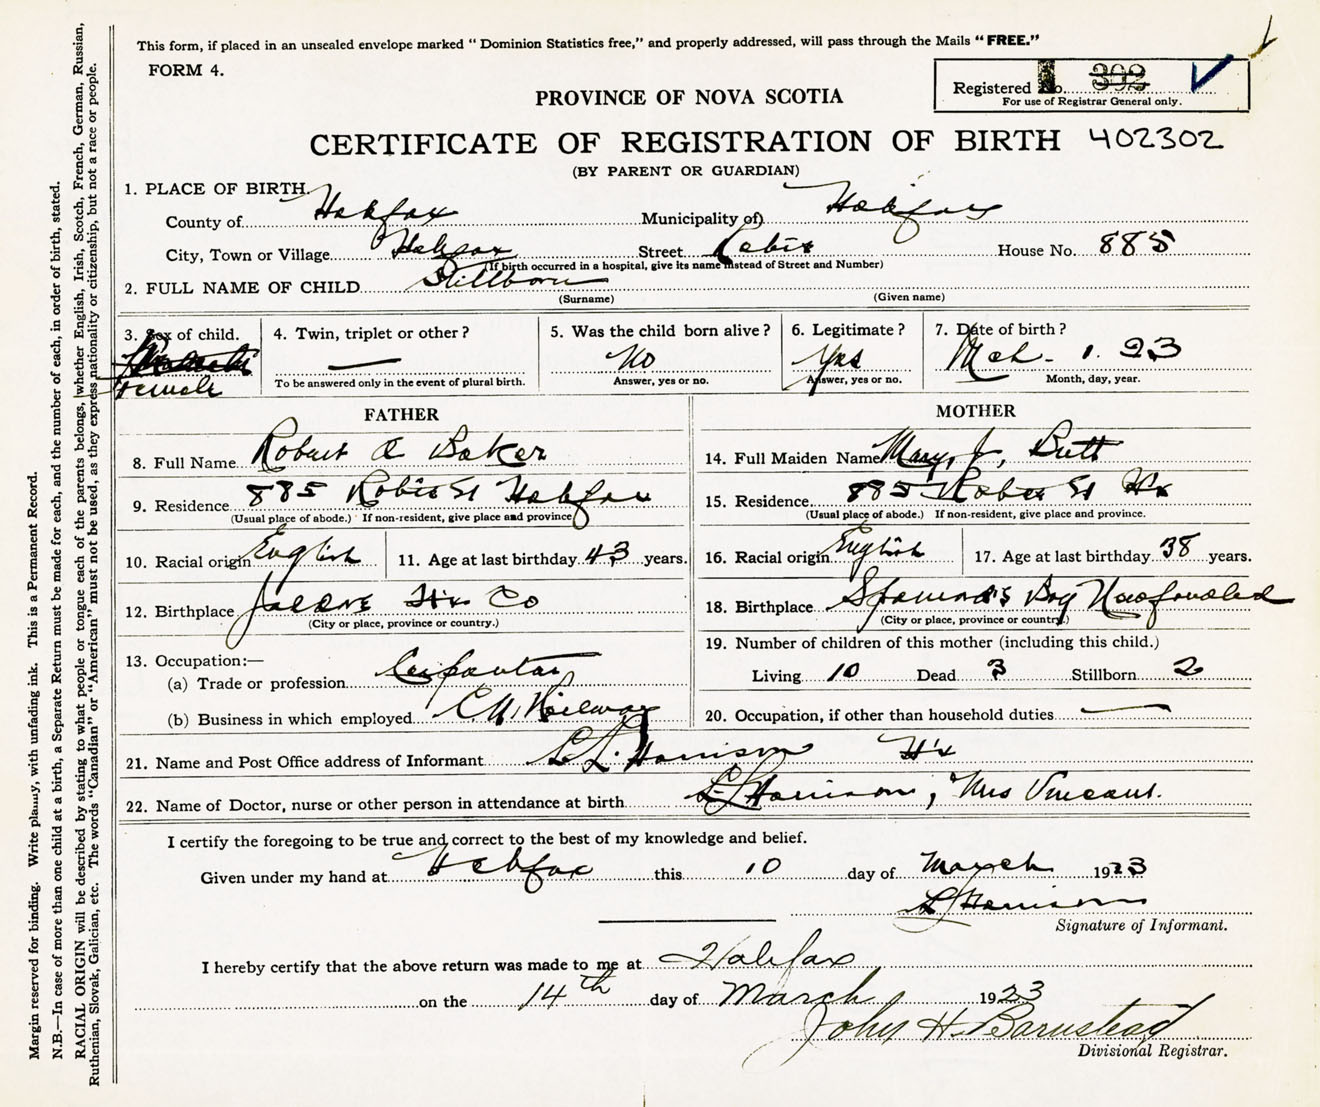 This form, if placed in an unsealed envelope marked “ Dominion Statistics free,” and properly addressed, will pass through the Mails “ FREE.”
FORM 4.
Registered No. 392
For use of Registrar General only.
PROVINCE OF NOVA SCOTIA
CERTIFICATE OF REGISTRATION OF BIRTH 402302
(BY PARENT OR GUARDIAN)
1. PLACE OF BIRTH.
County of Halifax Municipality of) Halifax
City, Town or Village Halifax Street Robie House No. 885
(If birth occurred in a hospital, give its name instead of Street and Number)
2. FULL NAME OF CHILD Stillborn
(Surname) (Given name)
3. Sex of child. 4. Twin, triplet or other? 5. Was the child born alive? 6. Legitimate? 7. Date of birth?
Female — No Yes Mch - 1. 23
To be answered only in the event of plural birth. Answer, yes or no. Answer, yes or no. Month, day, year.
FATHER MOTHER
8. Full Name Robert A Baker 14. Full Maiden Name Mary, J, Butt
9. Residence 885 Robie St Halifax 15. Residence 885 Robie St Hx
(Usual place of abode.) If non-resident, give place and province. (Usual place of abode.) If non-resident, give place and province.
10. Racial origin English 11. Age at last birthday 43 years. 16. Racial origin English 17. Age at last birthday 38 years.
12. Birthplace Hx Co 18. Birthplace
(City or place, province or country.) (City or place, province or country.)
19. Number of children of this mother (including this child.)
Living 10 Dead 3 Stillborn 2
13. Occupation:—
(a) Trade or profession Carpenter
(b) Business in which employed C.N. Railway 20. Occupation, if other than household duties —
21. Name and Post Office address of Informant L L. Harrison H'x
22. Name of Doctor, nurse or other person in attendance at birth L L Harrison, Mrs Vincent.
I certify the foregoing to be true and correct to the best of my knowledge and belief.
Given under my hand at Halifax this 10 day of March 1923
L L Harrison
Signature of Informant.
I hereby certify that the above return was made to me at Halifax
on the 14th day of March 1923
John H. Barnstead
Divisional Registrar.
Margin reserved for binding. Write plainly, with unfading ink. This is a Permanent Record.
N.B.—In case of more than one child at a birth, a Separate Return must be made for each, and the number of each, in order of birth, stated.
RACIAL ORIGIN will be described by stating to what people or tongue each of the parents belongs, whether English, Irish, Scotch, French, German, Russian,
Ruthenian, Slovak, Galician, etc. The words “Canadian” or “American” must not be used, as they express nationality or citizenship, but not a race or people.